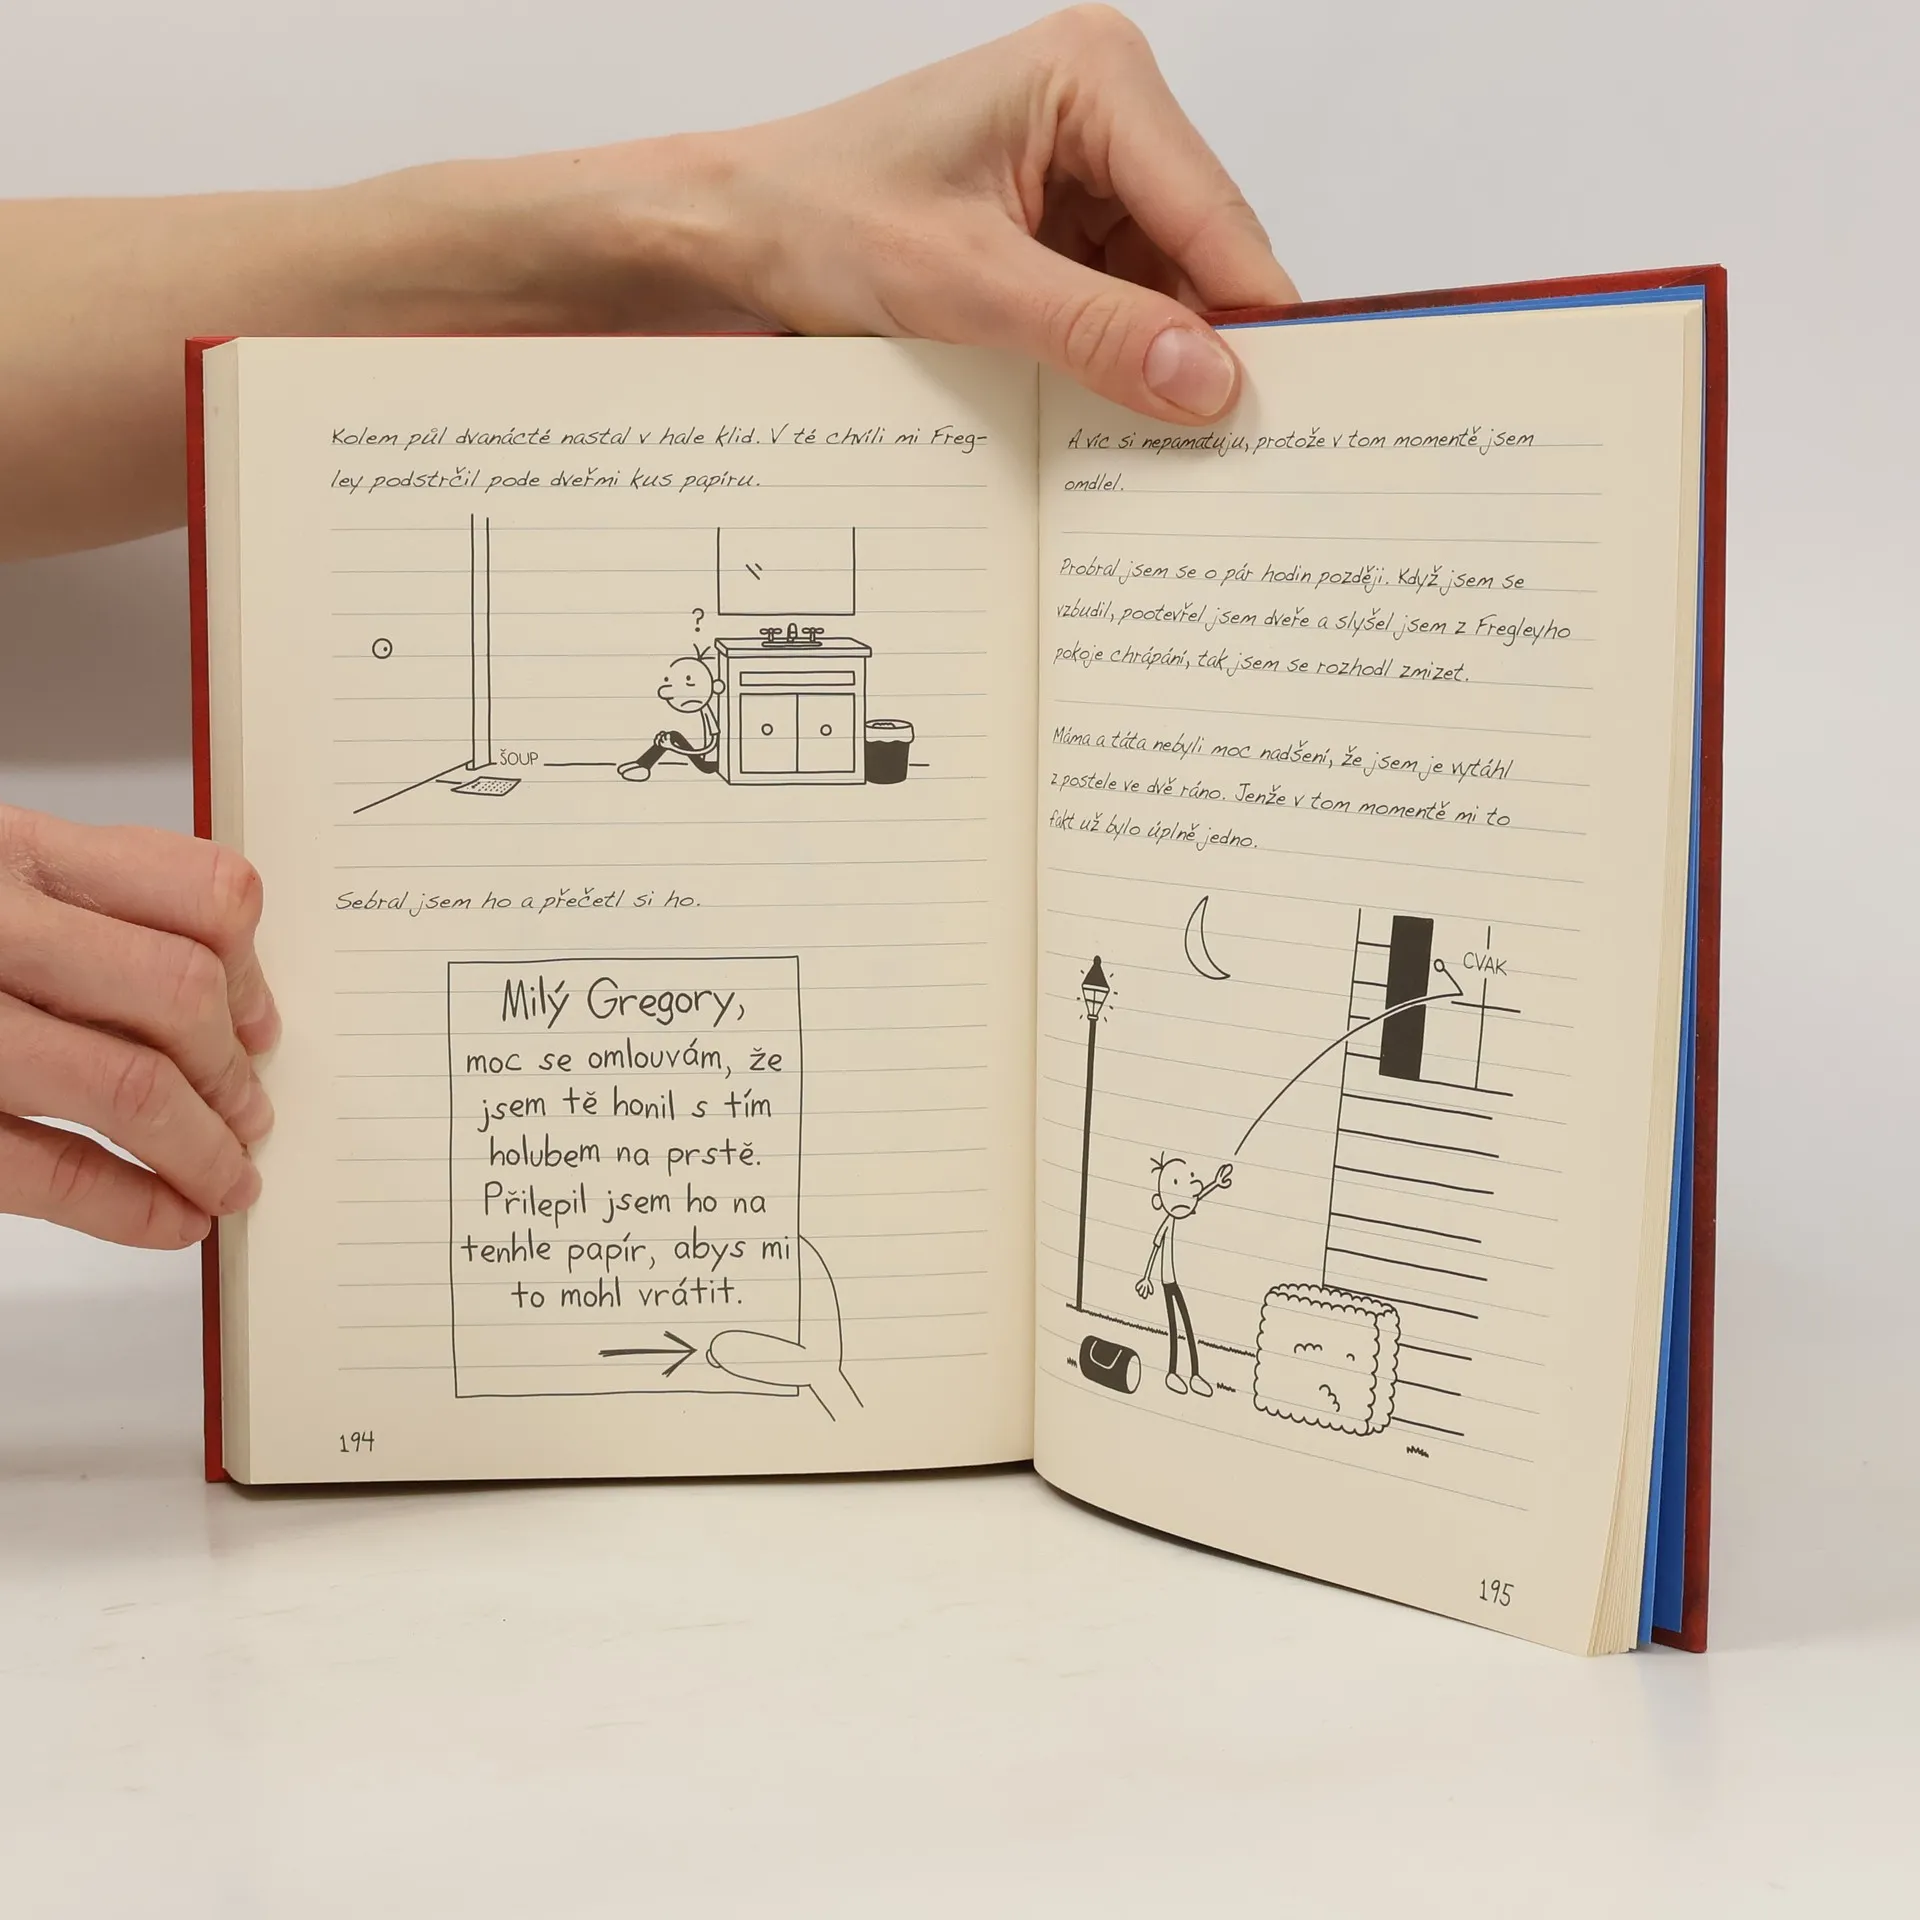 Kolem půl dvanácté nastal v hale klid. V té chvíli mi Freg-
ley podstrčil pode dveřmi kus papíru.
?
ŠOUP
Sebral jsem ho a přečetl si ho.
Milý Gregory,
moc se omlouvám, že
jsem tě honil s tím
holubem na prstě.
Přilepil jsem ho na
tenhle papír, abys mi
to mohl vrátit.
194
A víc si nepamatuju, protože v tom momentě jsem
omdlel.
Probral jsem se o pár hodin později. Když jsem se
vzbudil, pootevřel jsem dveře a slyšel jsem z Fregleyho
pokoje chrápání, tak jsem se rozhodl zmizet.
Máma a táta nebyli moc nadšení, že jsem je vytáhl
z postele ve dvě ráno. Jenže v tom momentě mi to
fakt už bylo úplně jedno.
CVAK
195